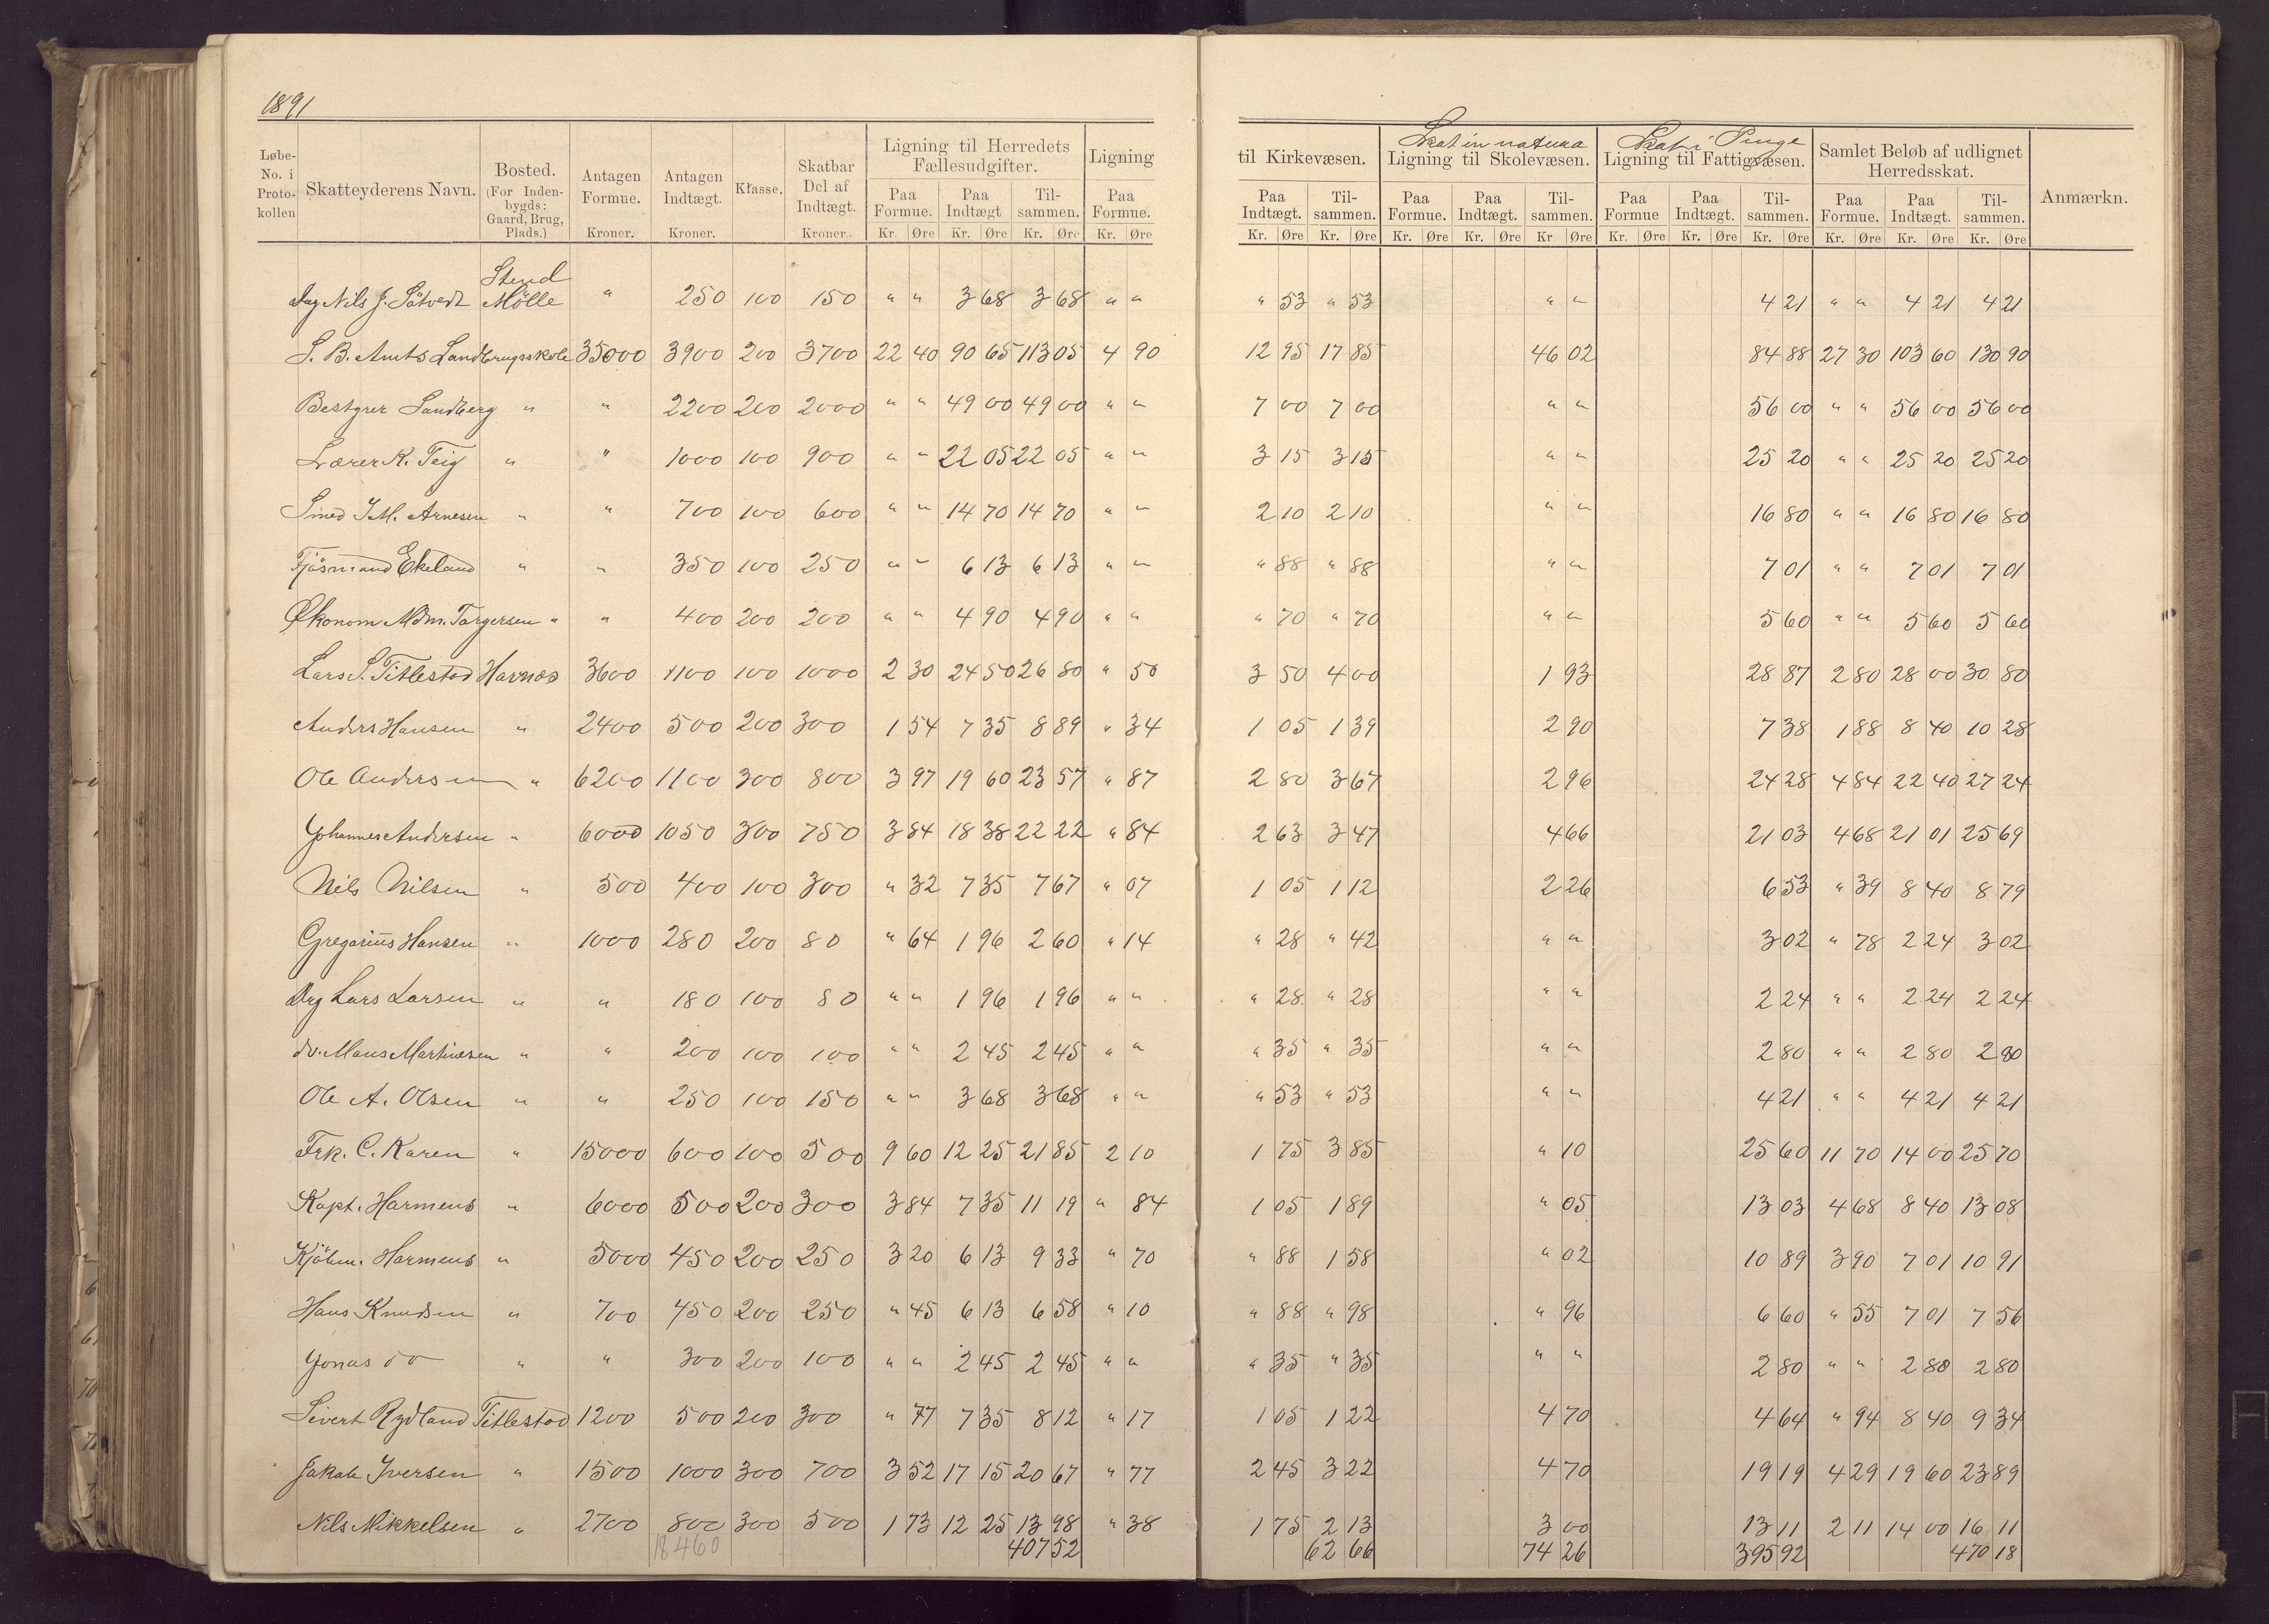 1891
Løbe- No. i Proto- kollen | Skatteyderens Navn. | Bosted. (For Inden- bygds: Gaard, Brug, Plads.) | Antagen Formue. Kroner. | Antagen Indtægt. Kroner. | Klasse. | Skatbar Del af Indtægt. Kroner. | Ligning til Herredets Fællesudgifter. Paa Formue. Kr. Øre Paa Indtægt Kr. Øre Til- sammen. Kr. Øre | Ligning Paa Formue. Kr. Øre | til Kirkevæsen. Paa Indtægt. Kr. Øre Til- sammen. Kr. Øre | Skat in natura Ligning til Skolevæsen. Paa Formue. Kr. Øre Paa Indtægt. Kr. Øre Til- sammen. Kr Øre | Skat i Penge Ligning til Fattigvæsen. Paa Formue Kr. Øre Paa Indtægt. Kr. Øre Til- sammen. Kr. Øre | Samlet Beløb af udlignet Herredsskat. Paa Formue. Kr. Øre Paa Indtægt. Kr. Øre Til- sammen. Kr. Øre | Anmærkn.
Dag Nils J. Sötvedt Stend Mölle " 250 100 150 " " 3 68 3 68 " " " 53 " 53 " " 4 21 " " 4 21 4 21
S. B. Amts Landbrugsskole 35000 3900 200 3700 22 40 90 65 113 05 4 90 12 95 17 85 46 02 84 88 27 30 103 60 130 90
Bestyrer Sandberg " " 2200 200 2000 " " 49 00 49 00 " " 7 00 7 00 " " 56 00 " " 56 00 56 00
Lærer K. Teig " " 1000 100 900 " " 22 05 22 05 " " 3 15 3 15 " " 25 20 " " 25 20 25 20
Smed J.M. Arnesen " " 700 100 600 " " 14 70 14 70 " " 2 10 2 10 " " 16 80 " " 16 80 16 80
Fjösmand Ekeland " " 350 100 250 " " 6 13 6 13 " " " 88 " 88 " " 7 01 " " 7 01 7 01
Økonom Mdm. Torgersen " " 400 200 200 " " 4 90 4 90 " " " 70 " 70 " " 5 60 " " 5 60 5 60
Lars S. Titlestad Havnæs 3600 1100 100 1000 2 30 24 50 26 80 " 50 3 50 4 00 1 93 28 87 2 80 28 00 30 80
Anders Hansen " 2400 500 200 300 1 54 7 35 8 89 " 34 1 05 1 39 2 90 7 38 1 88 8 40 10 28
Ole Andersen " 6200 1100 300 800 3 97 19 60 23 57 " 87 2 80 3 67 2 96 24 28 4 84 22 40 27 24
Johannes Andersen " 6000 1050 300 750 3 84 18 38 22 22 " 84 2 63 3 47 4 66 21 03 4 68 21 01 25 69
Nils Nilsen " 500 400 100 300 " 32 7 35 7 67 " 07 1 05 1 12 2 26 6 53 " 39 8 40 8 79
Gregarius Hansen " 1000 280 200 80 " 64 1 96 2 60 " 14 " 28 " 42 " " 3 02 " 78 2 24 3 02
Dag Lars Larsen " " 180 100 80 " " 1 96 1 96 " " " 28 " 28 " " 2 24 " " 2 24 2 24
do. Mans Martinesen " " 200 100 100 " " 2 45 2 45 " " " 35 " 35 " " 2 80 " " 2 80 2 80
Ole A. Olsen " " 250 100 150 " " 3 68 3 68 " " " 53 " 53 " " 4 21 " " 4 21 4 21
Frk. C. Karen " 15000 600 100 500 9 60 12 25 21 85 2 10 1 75 3 85 " 10 25 60 11 70 14 00 25 70
Kapt. Harmens " 6000 500 200 300 3 84 7 35 11 19 " 84 1 05 1 89 " 05 13 03 4 68 8 40 13 08
Kjöbm. Harmens " 5000 450 200 250 3 20 6 13 9 33 " 70 " 88 1 58 " 02 10 89 3 90 7 01 10 91
Hans Knudsen " 700 450 200 250 " 45 6 13 6 58 " 10 " 88 " 98 " 96 6 60 " 55 7 01 7 56
Jonas do " " 300 200 100 " " 2 45 2 45 " " " 35 " 35 " " 2 80 " " 2 80 2 80
Sivert Rydland Titlestad 1200 500 200 300 " 77 7 35 8 12 " 17 1 05 1 22 4 70 4 64 " 94 8 40 9 34
Jakob Iversen " 1500 1000 300 700 3 52 17 15 20 67 " 77 2 45 3 22 4 70 19 19 4 29 19 60 23 89
Nils Mikkelsen " 2700 800 300 500 1 73 12 25 13 98 " 38 1 75 2 13 3 00 13 11 2 11 14 00 16 11
18460 407 52 62 66 74 26 395 92 470 18